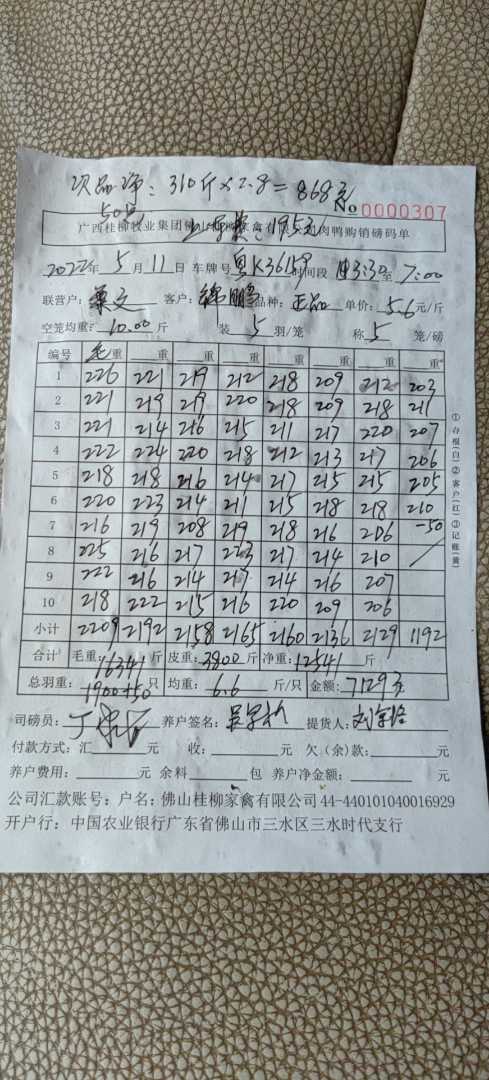 次品净：310斤×2.8=868元
50只
No 0000307
广西桂柳牧业集团佛山桂柳家禽有限公司肉鸭购销磅码单
195元
2022年 5月 11日 车牌号 粤K36159 时间段 3:30至 7:00
联营户： 客户： 鹏 品种：正品 单价：5.6元/斤
空笼均重：10.00斤 装 5 羽/笼 称 5 笼/磅
编号 毛重 重 重 重 重 重 重 重
1 226 221 219 212 218 209 212 203
2 221 219 219 220 218 209 218 211
3 221 214 216 215 211 217 220 207
4 222 224 220 218 212 213 217 206
5 218 218 216 214 217 215 215 205
6 220 223 214 211 215 218 218 210
7 216 219 208 219 218 216 206 -50
8 225 216 217 223 217 214 210
9 222 216 214 217 214 216 207
10 218 222 215 216 220 209 206
小计 2209 2192 2158 2165 2160 2136 2129 1192
合计 毛重：16341斤 皮重：3800斤 净重：12541斤
总羽重：1900+50只 均重：6.6斤/只 金额：71293
司磅员： 养户签名： 提货人：
付款方式：汇 元 收： 元 欠（余）款： 元
养户费用： 元 余料 包 养户净金额： 元
公司汇款账号：户名：佛山桂柳家禽有限公司44-440101040016929
开户行：中国农业银行广东省佛山市三水区三水时代支行
①存根（白）②客户（红）③记账（黄）